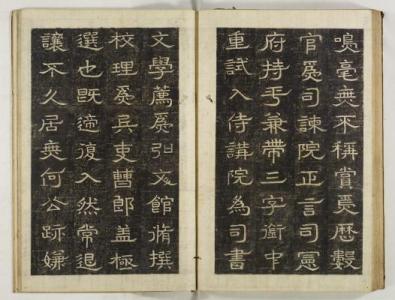 鳴毫無不稱賞歷數
官爲司諫院正言司憲
府持平兼帶三字銜中
重試入侍講院為司書
文學薦爲弘文館脩撰
校理爲兵吏曹郎盖極
選也旣適復入然常退
讓不久居無何公跡嫌